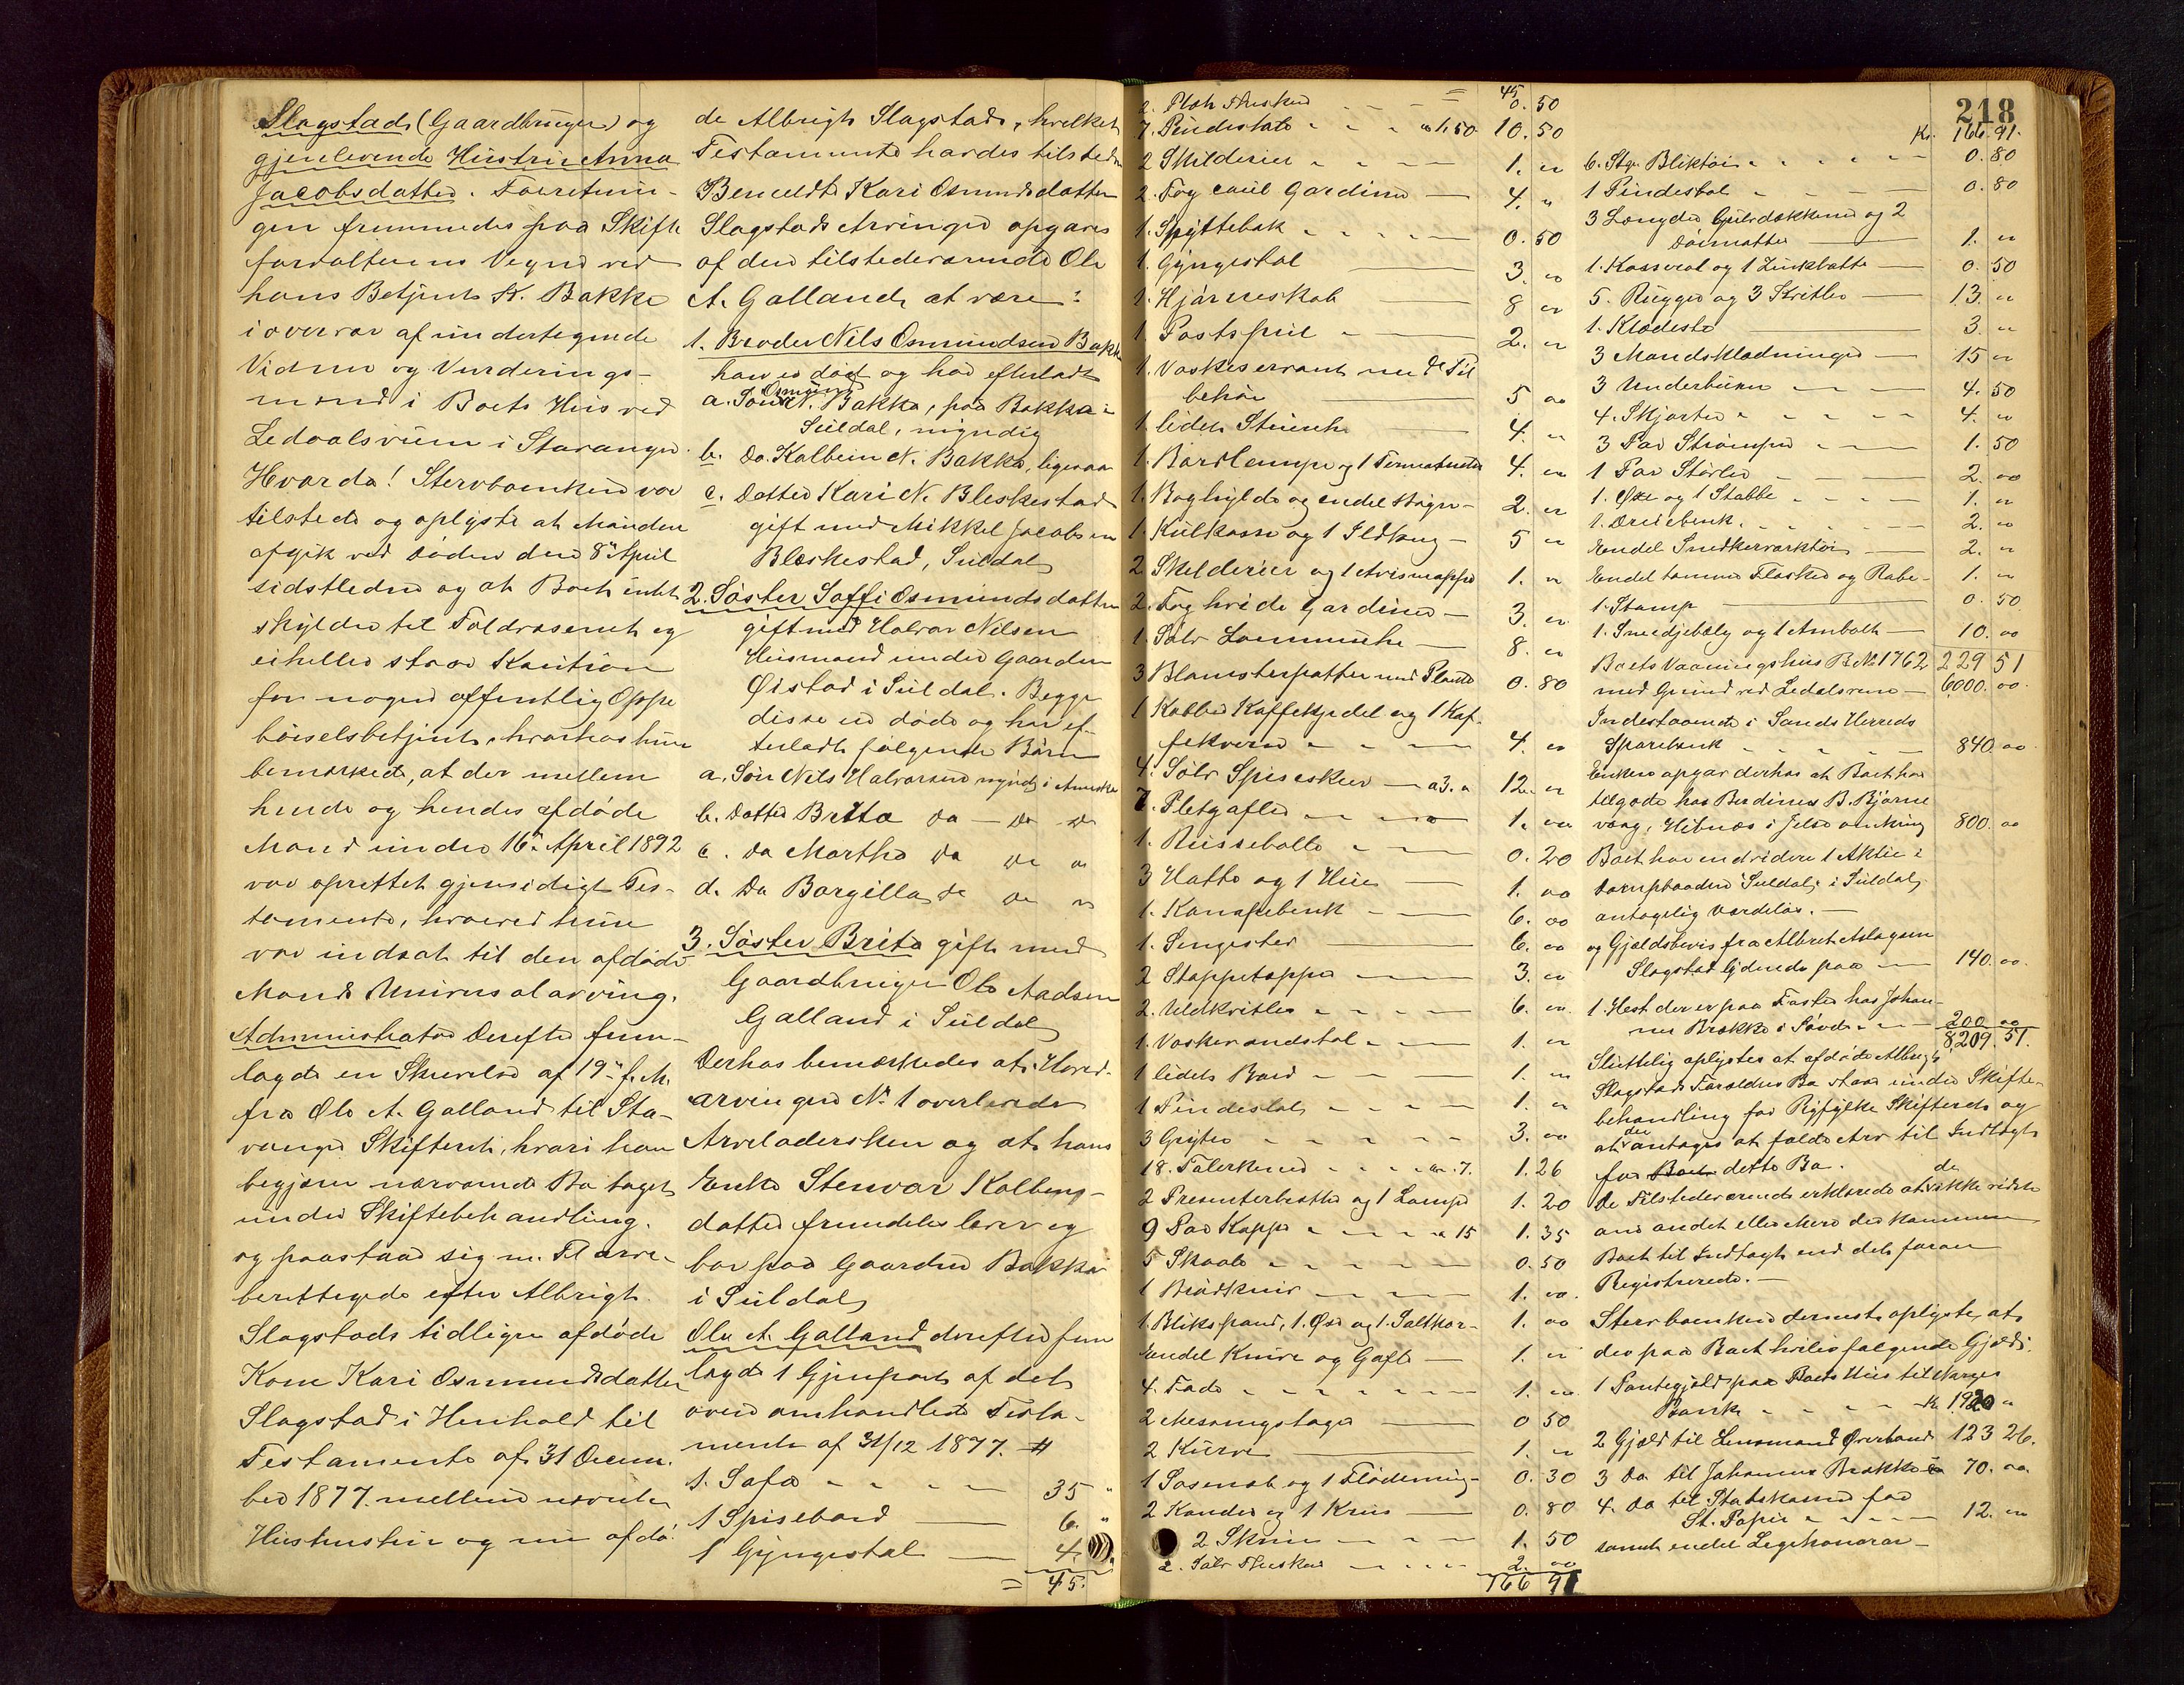 Slagstad (Gaardbruger) og
gjenlevende Hustru Anna
Jacobsdatter. Forretnin-
gen fremmedes paa Skifte
forvalterens Vegne ved
hans Betjent K. Bakke
i overvær af undertegnede
Vidner og Vurderings-
mænd i Boets Hus ved
Ledaalsvien i Stavanger.
Hvorda! Stervboenken var
tilstede og oplyste at Manden
afgik ved Døden den 8de April
sidstleden og at Boet intet
skylder til Toldvæsenet og
eiheller staar Kaution
for nogen offentlig Oppe
børselsbetjent, hvorhos hun
bemærkede, at der mellem
hende og hendes afdøde
Mand under 16de April 1892
var oprettet gjensidigt Tes-
tamente, hvorved hun
var indsat til den afdøde
Mands Universalarving.
Administrator derefter frem-
lagde en Skrivelse af 19de f. M.
fra Ole A. Galland til Sta-
vanger Skifteret, hvori han
begjærer nærværende Bo taget
under Skiftebehandling.
og paastaar sig m. Fl arve-
berettigede efter Albrigt
Slagstads tidligere afdøde
Kone Kari Osmundsdatter
Slagstad i Henhold til
Testamente af 31 Decem-
ber 1877 mellem nævnte
Hustru og nu afdø-
de Albrigt Slagstad, hvilket
Testamente hardes tilstede
Benævnte Kari Osmundsdatter
Slagstads Arvinger opgaves
af den tilstedeværende Ole
A. Galland at være:
1. Broder Nils Osmundsen Bakke
han er død og har efterladt
a. Søn Osmund N. Bakka, paa Bakka i
Suldal, myndig
b. Do. Kolbein N. Bakka, ligesaa
c. Datter Kari N. Bleskestad
gift med Mikkel Jacobsen
Bleskestad, Suldal
2. Søster Soffi Osmundsdatter
gift med Halvor Nilsen
Husmand under Gaarden
Øistad i Suldal. Begge
disse er døde og har ef-
terladt følgende Børn
a. Søn Nils Halvorsen myndig i Amerika
b. Datter Britta do - do do
c. do Martha do do do
d. Do Borgilla do do do
3. Søster Brita gift med
Gaardbruger Ole Aadsen
Galland i Suldal
Derhos bemærkedes at Hoved-
arvingen No 1 overlevede
Arveladersken og at hans
Enke Stenvor Kolbens-
datter fremdeles lever og
bor paa Gaarden Bakka
i Suldal
Ole A. Galland derefter frem
lagde 1 Gjenpart af det
oven omhandlede Testa-
mente af 31/12 1877. #
1. Sofa - - - - 35 "
1 Spisebord — 6. "
1 Gyngestol — 4.
= 45.
218
45
2. Plet Theskeer - - - 0. 50
7. Pindestole - - - a 1.50 10. 50
2 Skilderier - - - 1. "
2. Fag couil Gardiner — 4. "
1. Spyttebak - - - 0. 50
1. Gyngestol — 3. "
1. Hjørneskab — 8 "
1. Postspeil - — 2. "
1. Vaskeservant med Til
behør — 5 00
1 liden Skjænk — 4. "
1. Bordlampe og 1 Termometer 4. "
1. Boghylde og endel Bøger - 2. "
1. Kulkasse og 1 Ildtang - 5 "
2. Skilderier og 1 Avismappe 1. "
2. Fag hvide Gardiner — 3. "
1. Sølv Lommeuhr — 8. "
3 Blomsterpotter med Planter 0. 80
1 Kobber Kaffekjedel og 1 Kaf-
fekværn - - - 4. "
4. Sølv Spiseskeer — a3. " 12. "
7. Pletgafler - - - 1. 00
1. Punschebolle - — 0. 20
3 Hatte og 1 Hue — 1. 00
1. Kanapebenk - — 6. 00
1. Sengested — 6. 00
2 Stoppetæpper — 3. 00
2. Uldkvitler - - - - 6. "
1. Vaskevandstol - - — 1. "
1 lidet Bord - - — 1. "
1 Pindestol - - - - 1. "
3 Gryter - - - - - 3. 00
18. Talerkener - - - a 7. 1. 26
2 Presenterbrætte og 1 Lampe 1. 20
9 Par Kopper - - - a 15 1. 35
5 Skaale - - - - - 0. 50
1 Brødkniv - - - 1. 00.
1. Blikspand, 1. Øse og 1. Saltkar - 1. 00
Endel Knive og Gafler — 1. "
4. Fade - - - - - 1. "
2 Messingstager — 0 50
2 Kurve — 1. "
1 Sosenæb og 1 Flødemug - 0. 30
2 Kander og 1 Krus — 0. 80
2 Skrin - - - 1. 50
2. Sølv Theskeer - - - 2. 00
166 91
Kr. 166. 91.
6. Stgr. Bliktøi - - - - 0. 80
1 Pindestol - - - 0. 80
3 Længder Gulvdækkener og 2
Dørmatter — 1. "
1. Kasserol og 1 Zinkbøtte — 0. 50
5. Rugger og 3 Kvitler — 13. "
1. Klædeskab — 3. "
3 Mandsklædninger — 15 "
3 Underbuxer - - - 4. 50
4. Skjorter - - - - - 4. "
3 Par Strømper - - - 1. 50
1 Par Støvler - - - 2. 00
1. Øxe og 1 Stabbe - - - - 1. "
1. Dreiebenk. - - - - - 2. "
Endel Snedkerværktøi — 2. "
Endel tomme Flasker og Rabe- 1. "
1. Stamp — 0. 50.
1. Smedjebælg og 1 Ambolt — 10. 00
229 51
Boets Vaaningshus B No 1762
med Grund ved Ledalsveien — 6000. 00.
Indestaaende i Sands Herreds
Sparebank - - - - - 840. 00
Enken opgav derhos at Boet har
tilgode hos Berdines B. Bjørne
vaag, Hebnæs i Jelse omkring 800. 00
Boet har endvidere 1 Aktie i
Dampbaaden "Suldal" i Suldal,
antagelig værdeløs. —
og Gjældsbevis fra Albret Aslagsen
Slagstad lydende paa — 140. 00.
1. Hest der er paa Foster hos Johan-
nes Brakke i Søvde - - 200. 00
8209. 51.
Sluttelig oplystes at afdøde Albrigt
Slagstads Forældres Bo staar under Skifte-
behandling for Ryfylke Skifteret og
at der antages at falde Arv til Indtægt
for Boet dette Bo.
De Tilstedeværende erklærede at de ikke vidste
om andet eller Mere der kommer
Boet til Indtægt end det foran
Registrerede. —
Stervboenken dernest oplyste, at
der paa Boet hviler følgende Gjæld:
1 Pantegjæld paa Boets Hus til Norges
Bank - - - - - Kr 1920 "
2 Gjæld til Lensmand Øverland 123 26.
3 Do til Johannes Brakke 70. 00
4. Do til Statskassen for
St. Papir - - - - - 12. "
samt endel Legehonorar —